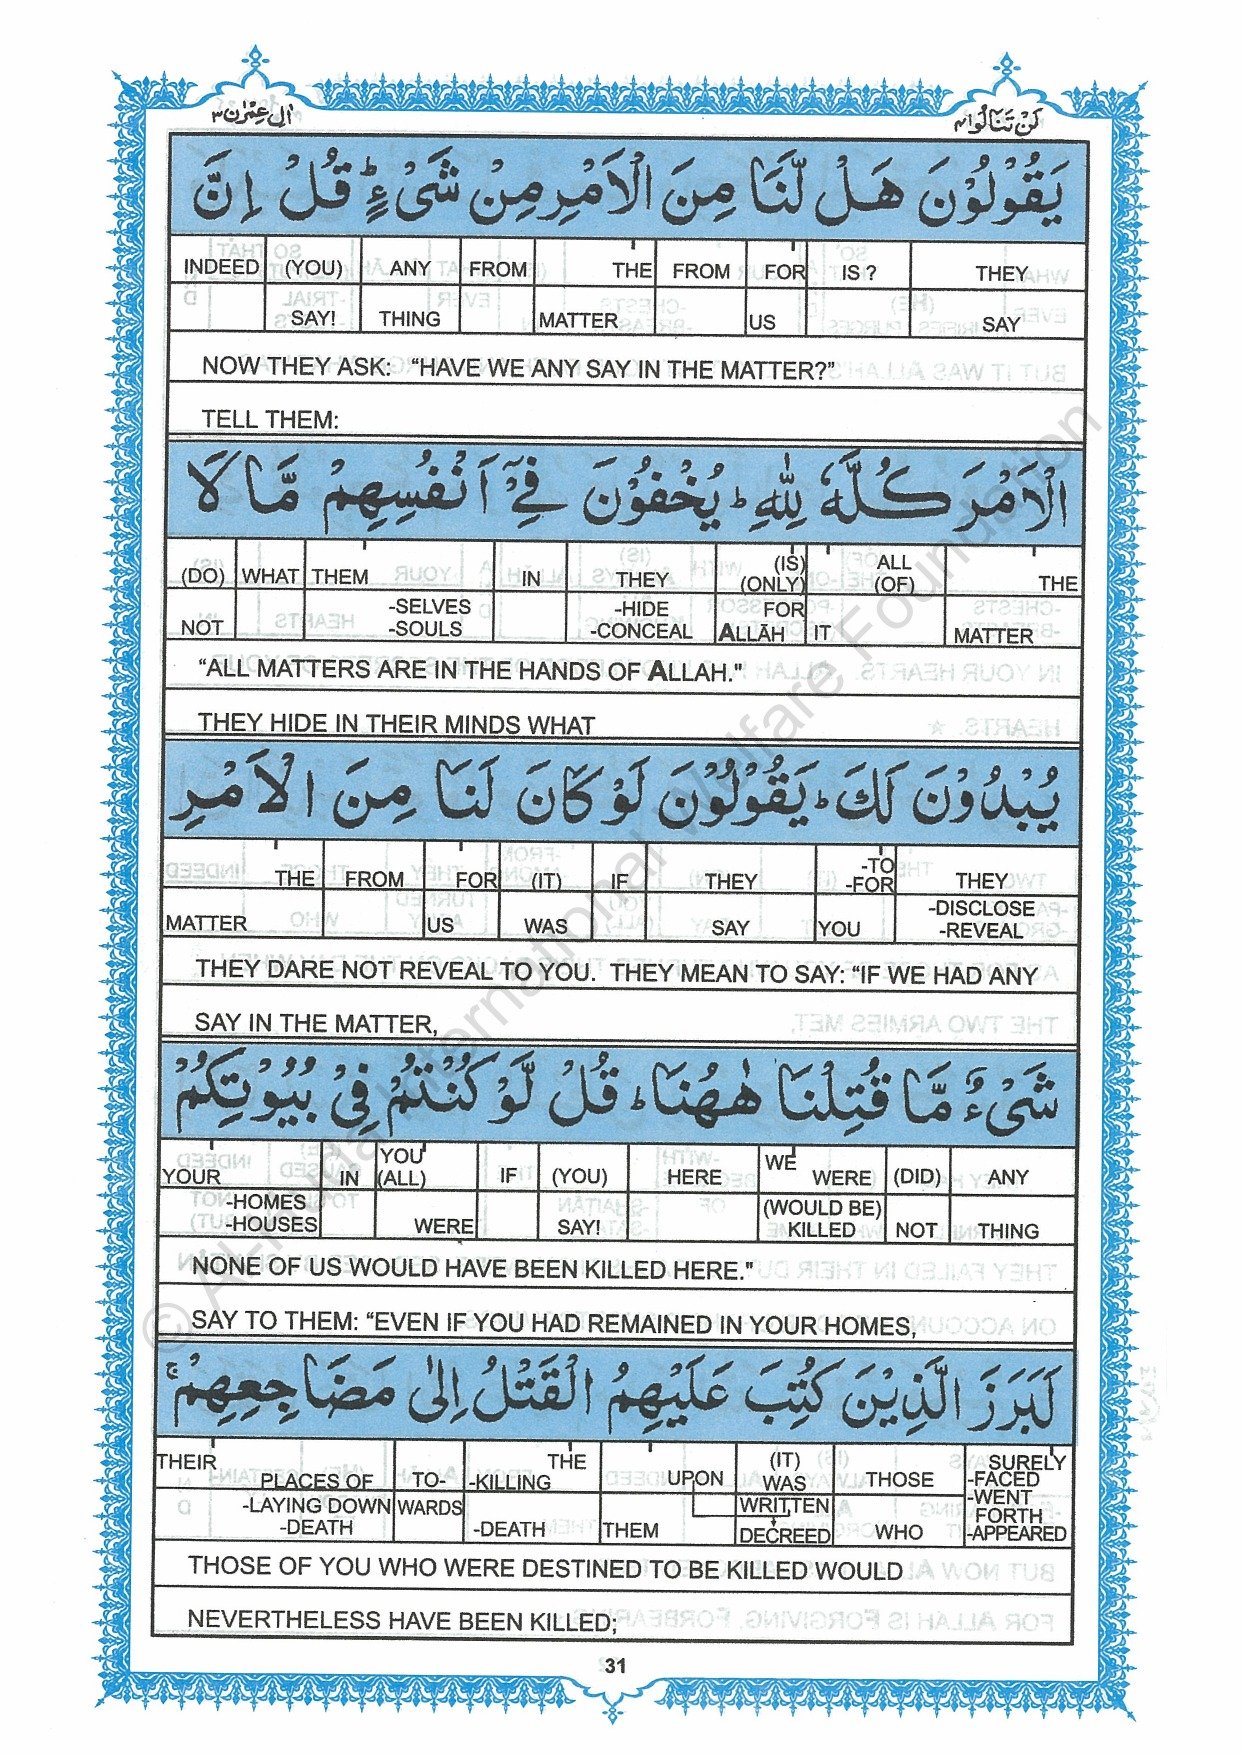 اٰلِ عِمْرٰن ٣
لَنْ تَنَالُوا ٤
يَقُوْلُوْنَ هَلْ لَّنَا مِنَ الْاَمْرِ مِنْ شَیْءٍ ؕ قُلْ اِنَّ
INDEED (YOU) ANY FROM THE FROM FOR IS ? THEY
SAY! THING MATTER US SAY
NOW THEY ASK: “HAVE WE ANY SAY IN THE MATTER?”
TELL THEM:
الْاَمْرَ كُلَّهٗ لِلّٰهِ ؕ يُخْفُوْنَ فِیْۤ اَنْفُسِهِمْ مَّا لَا
(IS) ALL
(DO) WHAT THEM IN THEY (ONLY) (OF) THE
-SELVES -HIDE FOR
NOT -SOULS -CONCEAL ALLĀH IT MATTER
“ALL MATTERS ARE IN THE HANDS OF ALLAH."
THEY HIDE IN THEIR MINDS WHAT
يُبْدُوْنَ لَكَ ؕ يَقُوْلُوْنَ لَوْ كَانَ لَنَا مِنَ الْاَمْرِ
-TO
THE FROM FOR (IT) IF THEY -FOR THEY
-DISCLOSE
MATTER US WAS SAY YOU -REVEAL
THEY DARE NOT REVEAL TO YOU. THEY MEAN TO SAY: “IF WE HAD ANY
SAY IN THE MATTER,
شَیْءٌ مَّا قُتِلْنَا هٰهُنَا ؕ قُلْ لَّوْ كُنْتُمْ فِیْ بُيُوْتِكُمْ
YOU WE
YOUR IN (ALL) IF (YOU) HERE WERE (DID) ANY
-HOMES (WOULD BE)
-HOUSES WERE SAY! KILLED NOT THING
NONE OF US WOULD HAVE BEEN KILLED HERE."
SAY TO THEM: “EVEN IF YOU HAD REMAINED IN YOUR HOMES,
لَبَرَزَ الَّذِيْنَ كُتِبَ عَلَيْهِمُ الْقَتْلُ اِلٰى مَضَاجِعِهِمْ ۚ
THEIR THE (IT) SURELY
PLACES OF TO- -KILLING UPON WAS THOSE -FACED
-LAYING DOWN WARDS WRITTEN -WENT FORTH
-DEATH -DEATH THEM DECREED WHO -APPEARED
THOSE OF YOU WHO WERE DESTINED TO BE KILLED WOULD
NEVERTHELESS HAVE BEEN KILLED;
31